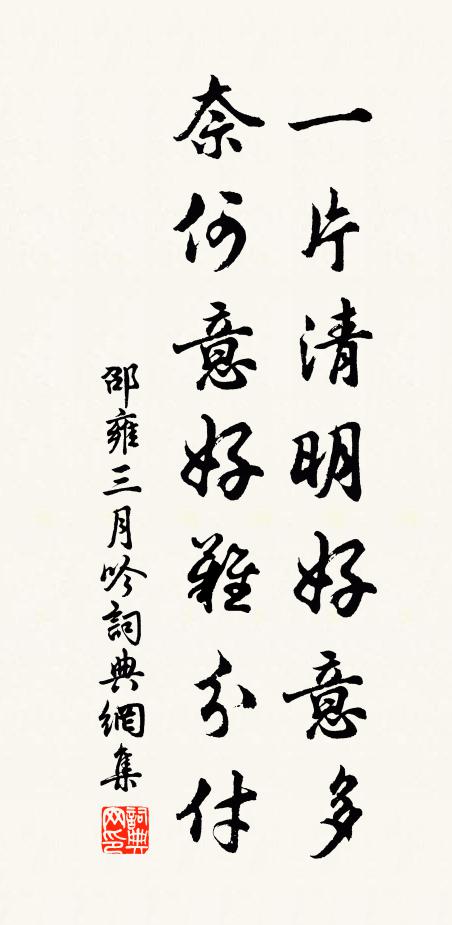 一片清明好意多
奈何意好難分付
邵雍三月吟詞典網集
詞典网印